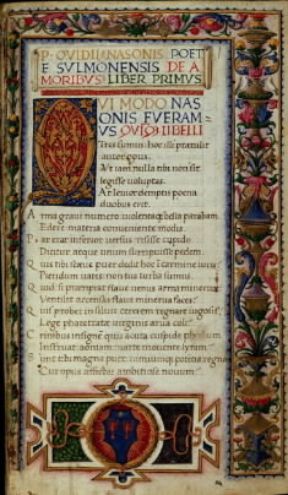 P. OVIDII NASONIS POET
E SVLMONENSIS DE A
MORIBVS LIBER PRIMVS
QVI MODO NAS
ONIS FVERAM=
VS QVIQ LIBELLI
Tres sumus: hoc ille pretulit
autor opus.
Vt iam nulla tibi non sit
legisse voluptas.
At levior demptis poena
duobus erit.
Arma gravi numero violentaq bella parabam
Edere materia conveniente modis.
Par erat inferior versus risisse cupido
Dicitur atque unum surripuisse pedem.
Quis tibi sleve puer dedit hoc i carmine iuris
Pieridum vates: non tua turba sumus.
Quid si preripiat flave venus arma minerve
Ventilet accensas flava minerva faces.
Quis probet in silvis cererem regnare iugosis
Lege pharetrate virginis arva coli.
Crinibus insignem quis acuta cuspide phebum
Instruat: aoniam marte movente lyram.
Sunt tibi magna puer: nimiumq potentia regna
Cur opus affectas ambitiose novum.